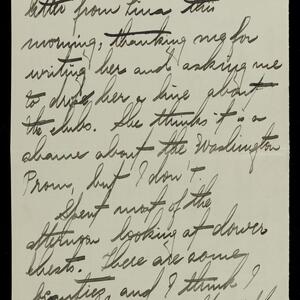 letter from Lina this
morning, thanking me for
writing her and asking me
to drop her a line about
the clubs. She thinks it is a
shame about the Washington
Prom, but I don't.
Spent most of the
afternoon looking at dower
chests. There are some
beauties and I think I